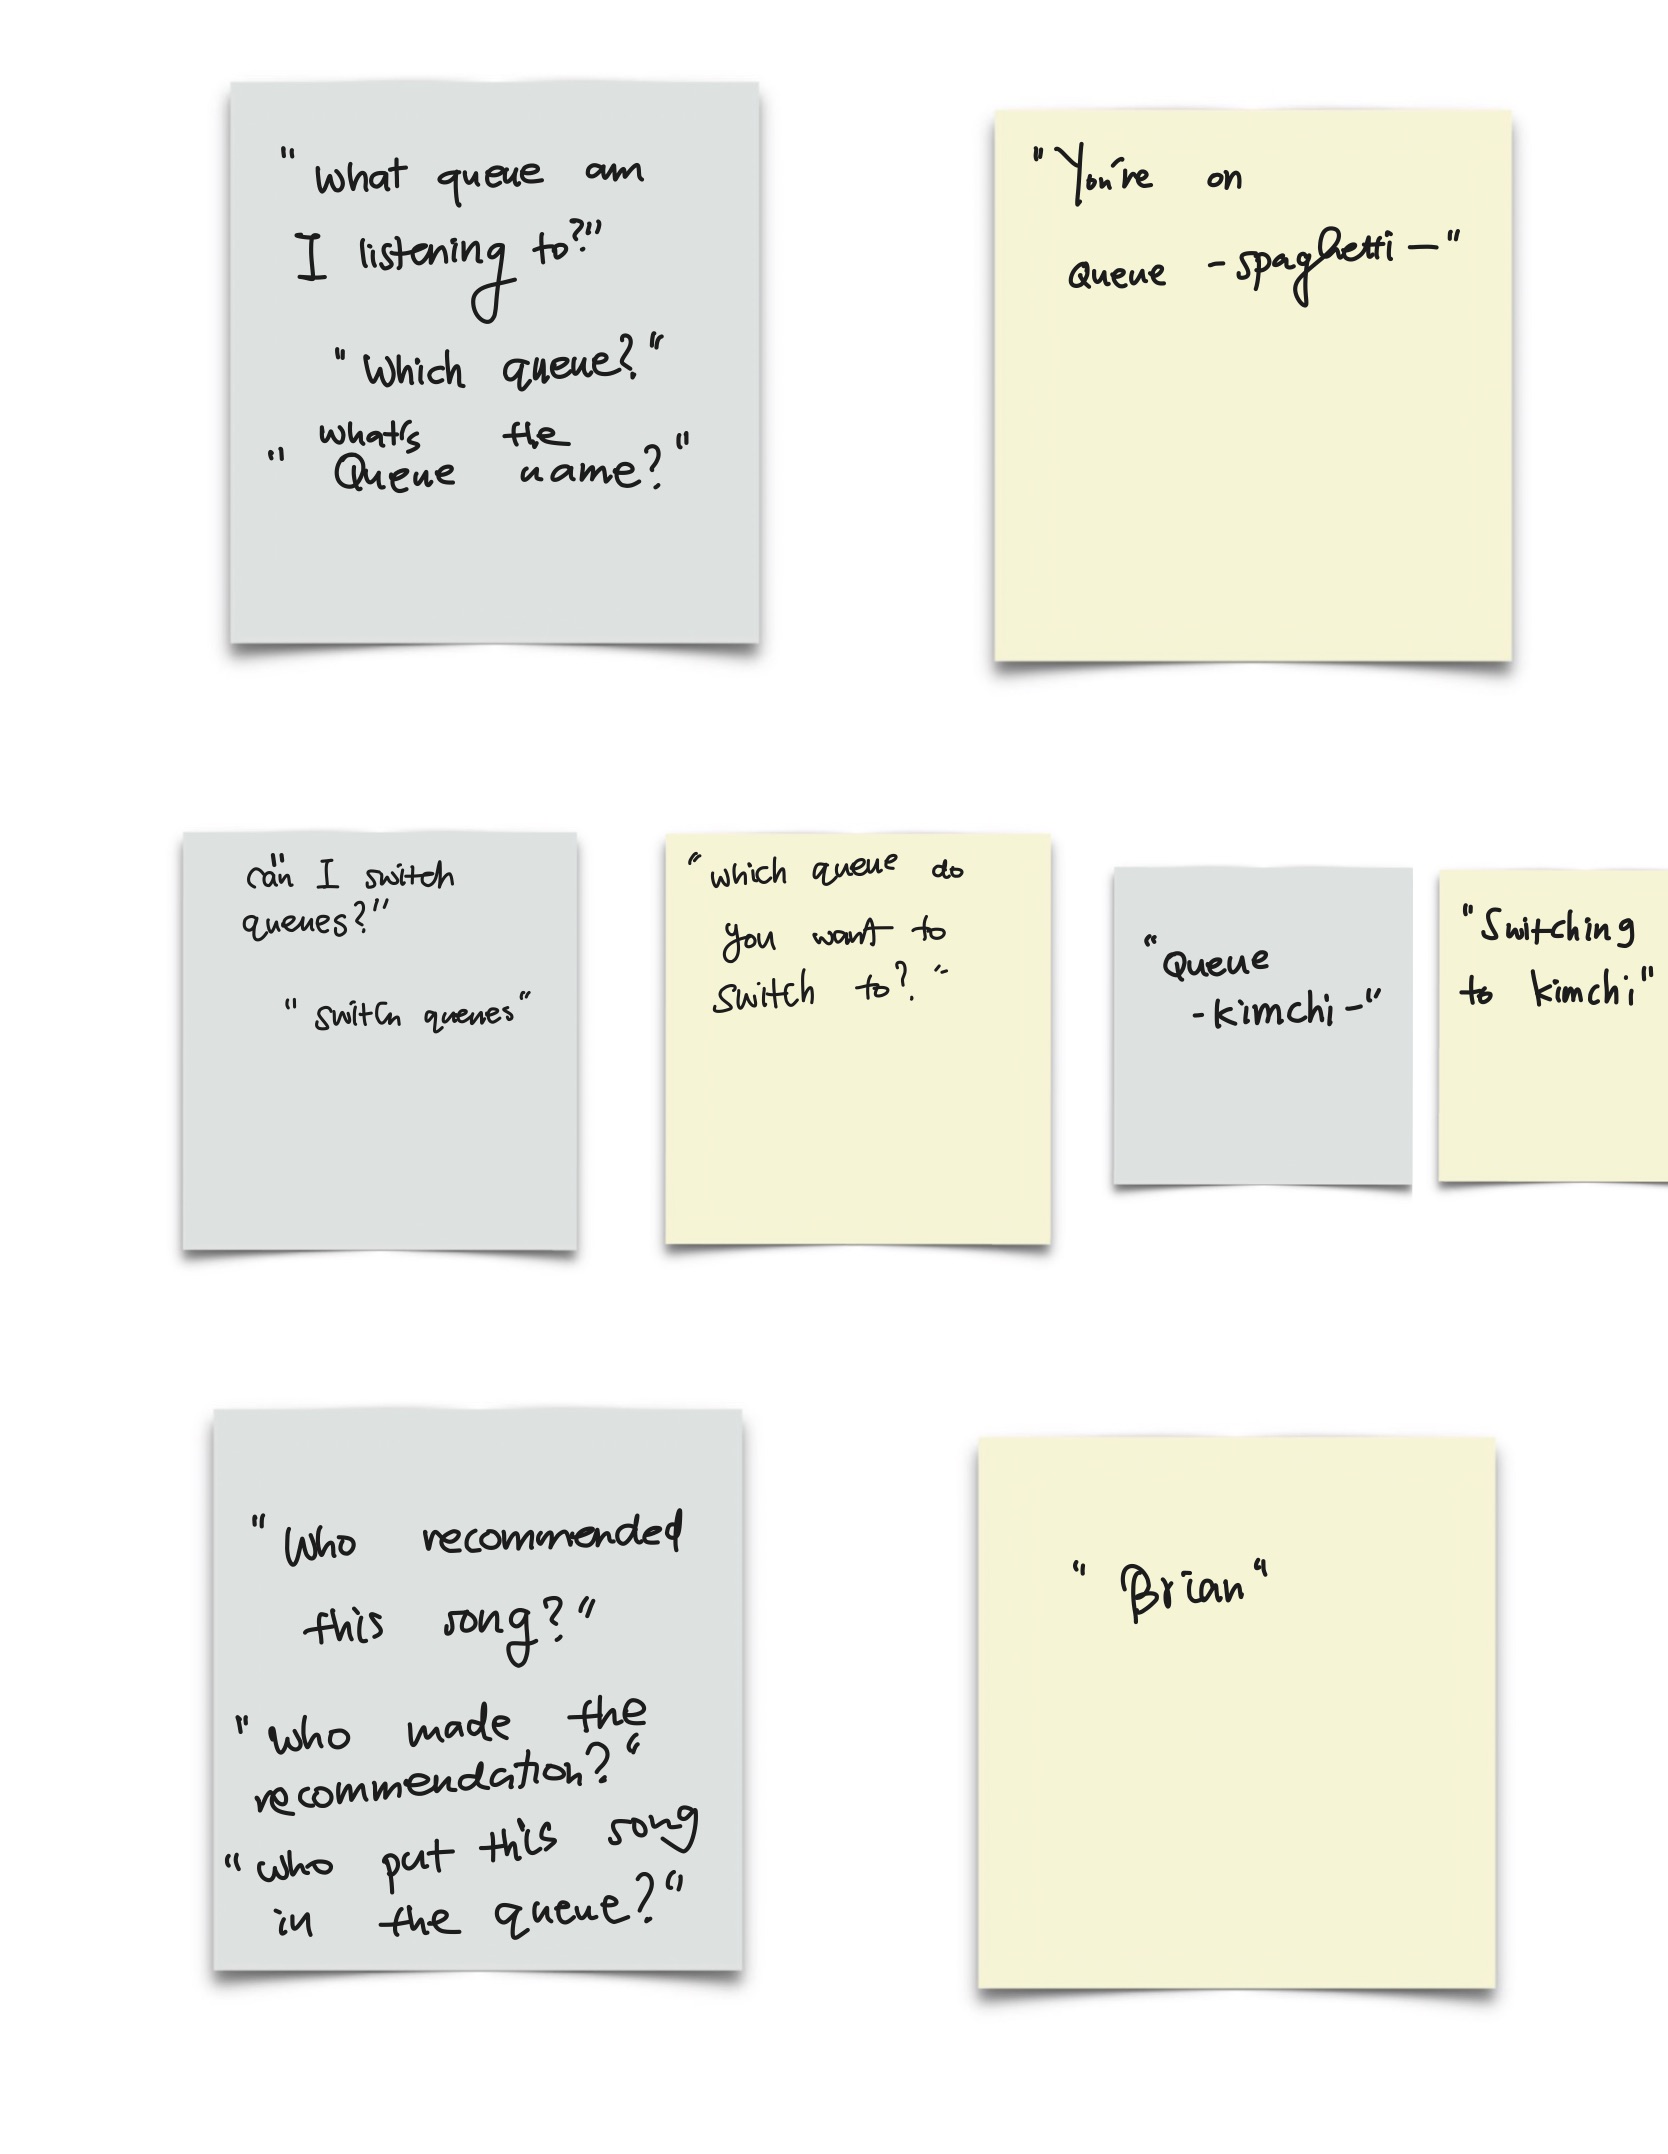 "What queue am
I listening to?"
"Which queue?"
"What's the
Queue name?"
"You're on
Queue - spaghetti -"
"Can I switch
queues?"
"switch queues"
"which queue do
you want to
switch to?"
"Queue
- kimchi -"
"Switching
to kimchi"
"Who recommended
this song?"
"Who made the
recommendation?"
"who put this song
in the queue?"
"Brian"